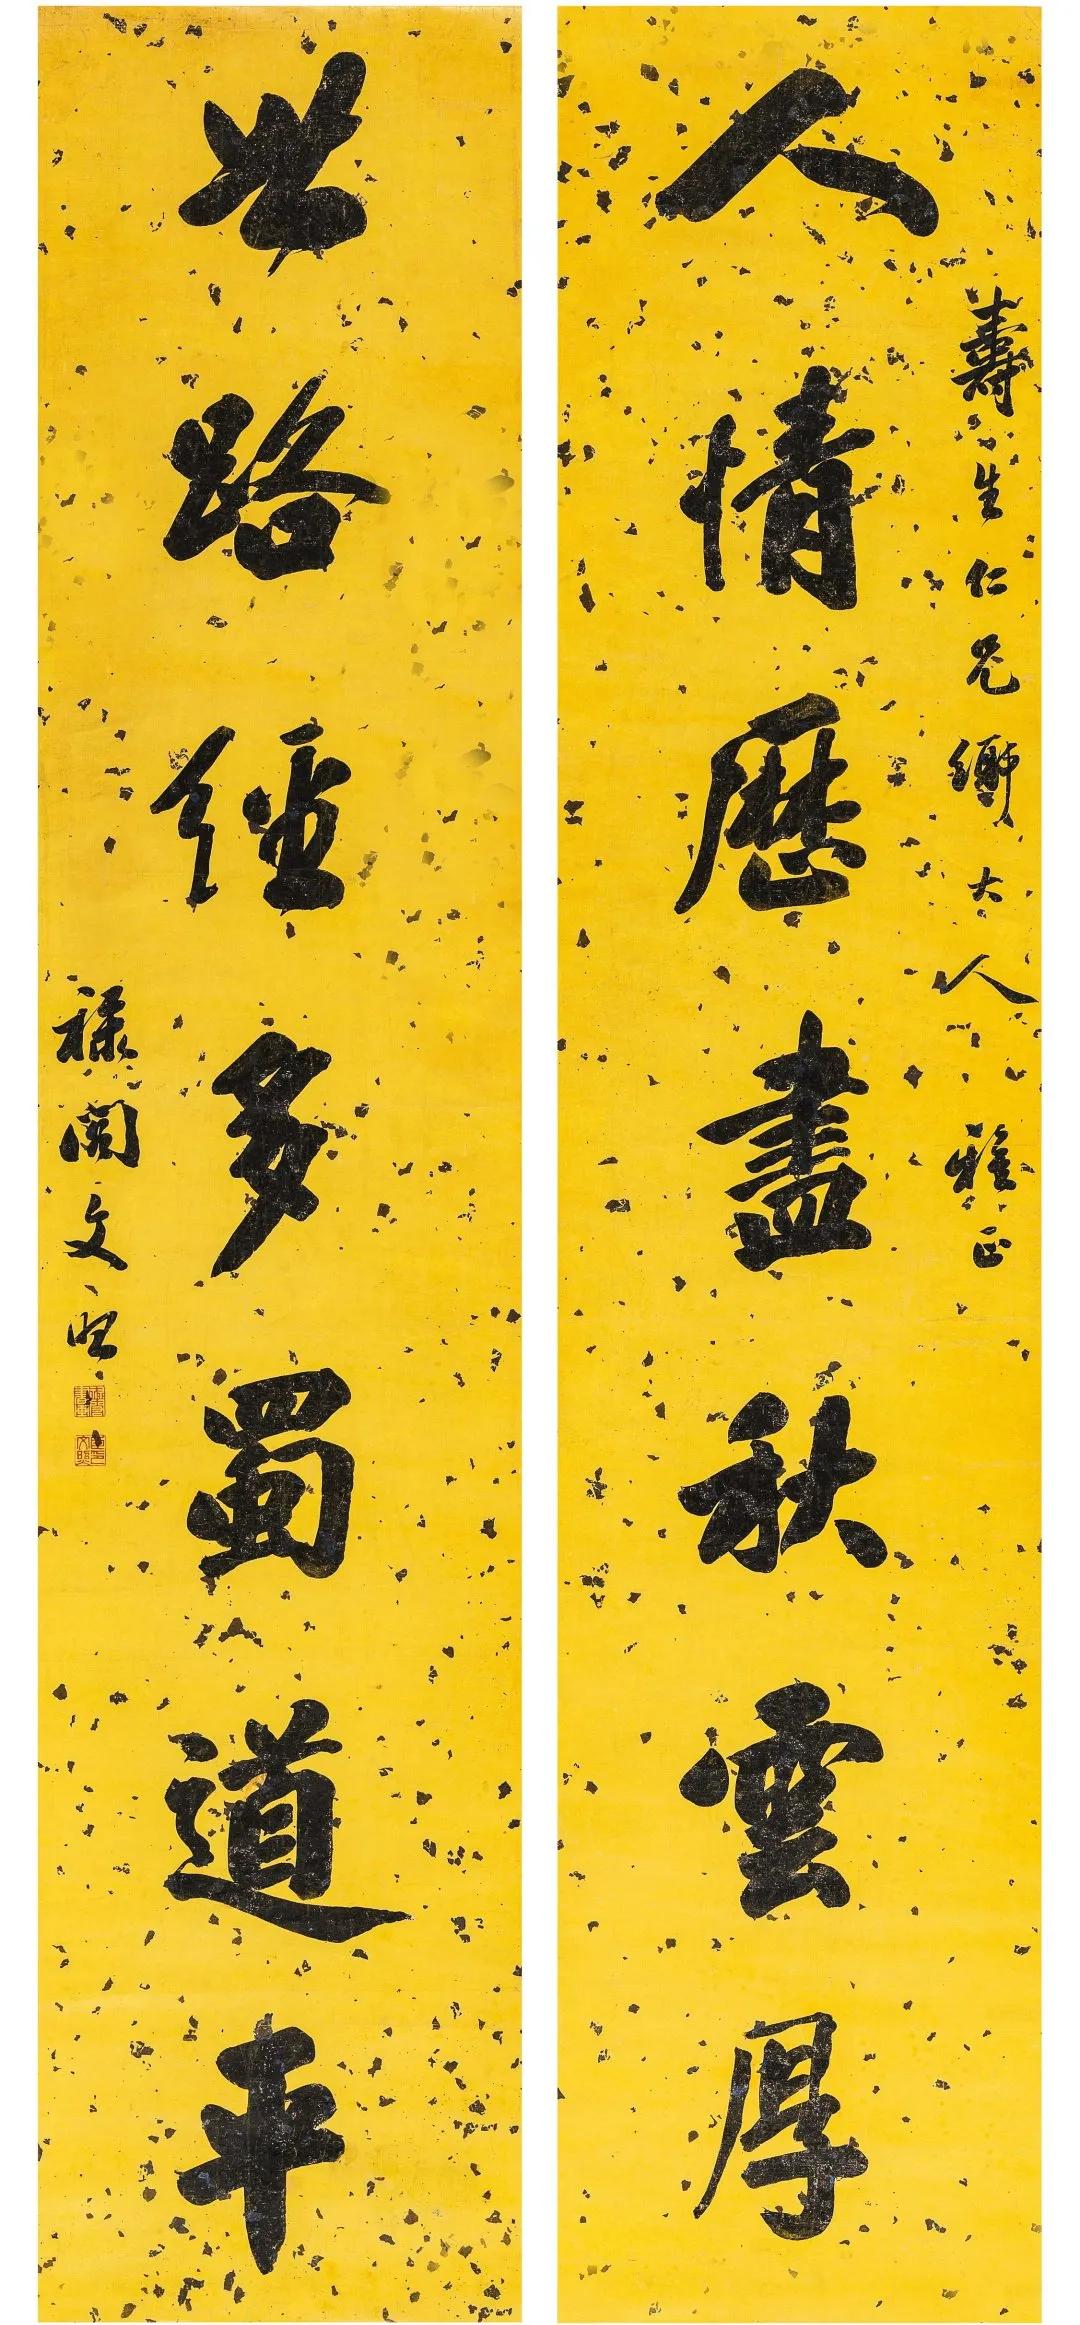 人情歷盡秋雲厚
壽生仁兄鄉大人雅正
世路經多蜀道平
祿閣文熙